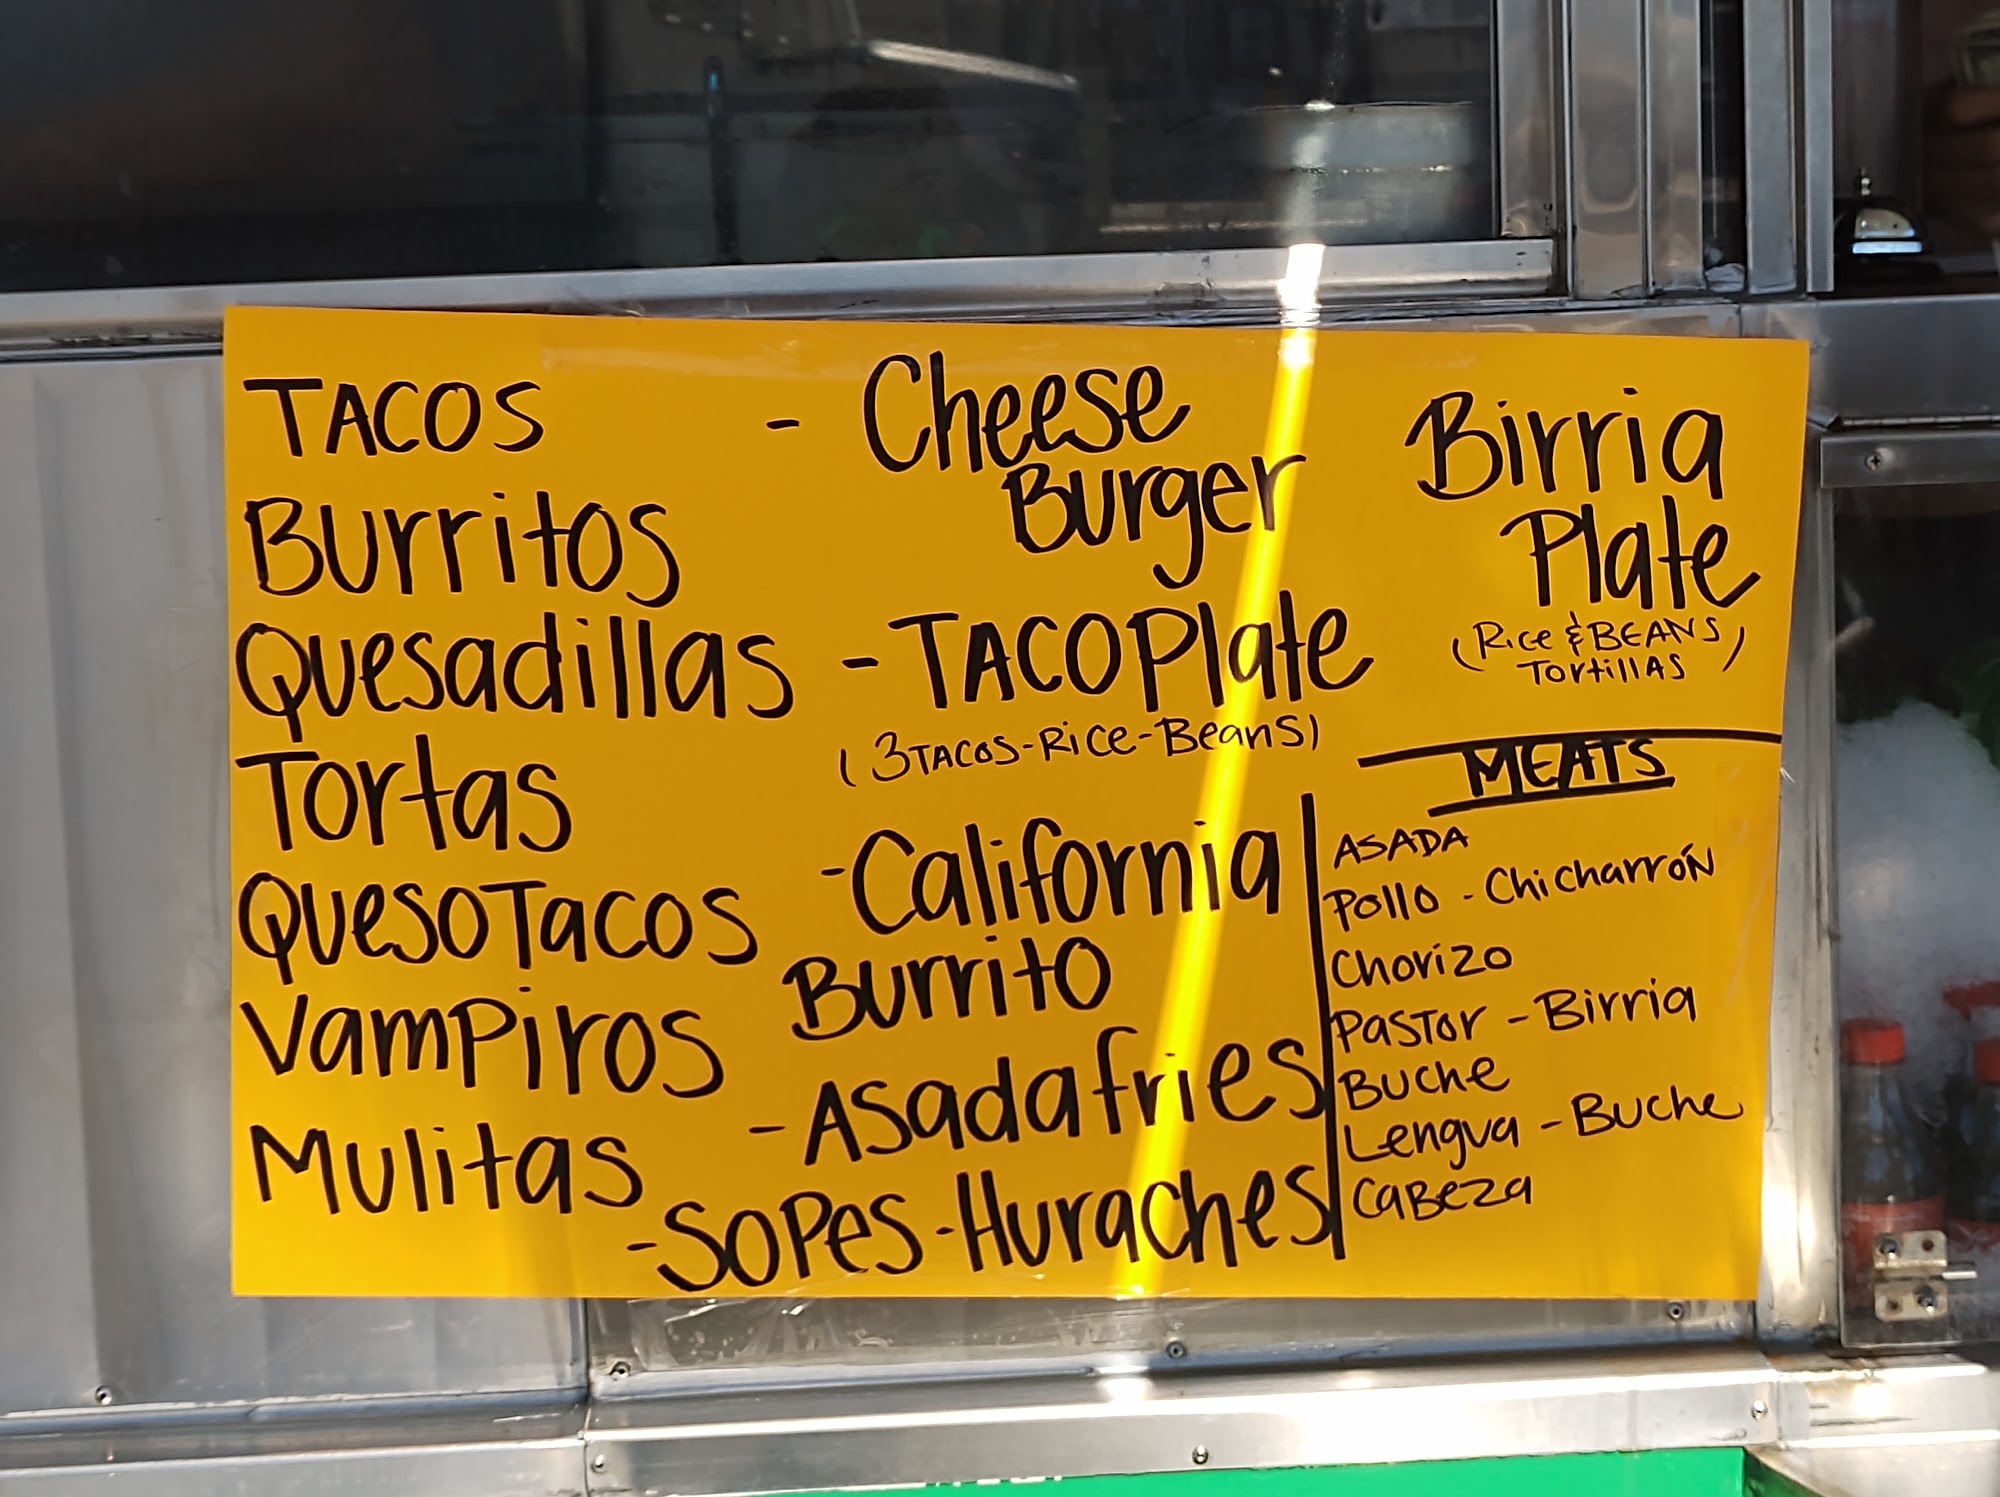 TACOS
Burritos
Quesadillas
Tortas
QuesoTacos
Vampiros
Mulitas
- Cheese
Burger
- TACO Plate
(3TACOS-Rice-Beans)
- California
Burrito
- Asada fries
- SOPes - Huraches
Birria
Plate
(Rice & BEANS
Tortillas)
MEATS
ASADA
Pollo - Chicharrón
Chorizo
Pastor - Birria
Buche
Lengua - Buche
Cabeza